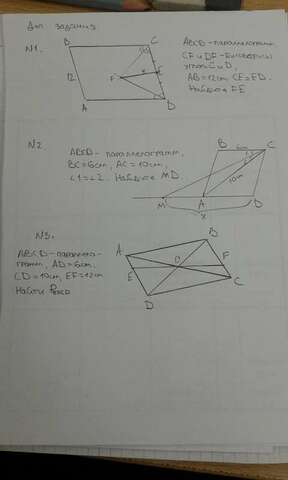 Дом задание
N1.
B C
12
F x E
A D
ABCD - параллелограмм
CF и DF - биссектрисы
углов C и D,
AB = 12см CE = ED.
Найдите FE
N2
ABCD - параллелограмм,
BC = 6см, AC = 10см,
∠1 = ∠2. Найдите MD
B 6см C
10см
M A D
x
N3.
ABCD - паралле-
грамм, AD = 6см,
CD = 10см, EF = 12см
Найти
A B
E O F
D C